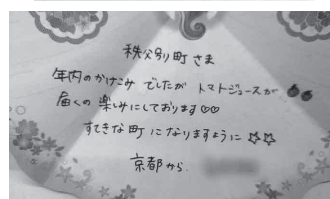 秩父別町さま
年内のかけこみでしたがトマトジュースが
届くの楽しみにしております♡♡
すてきな町になりますように☆☆
京都から